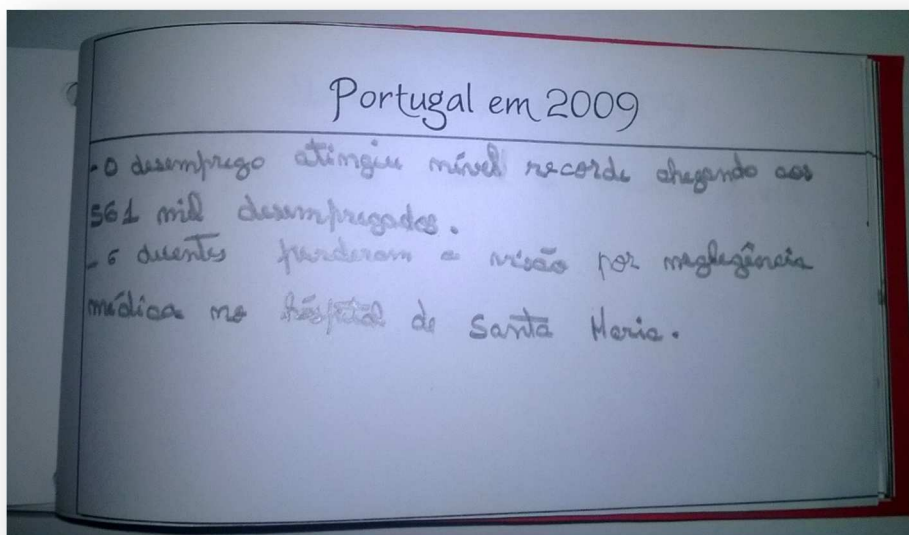 Portugal em 2009
- O desemprego atingiu nível recorde chegando aos
561 mil desempregados.
- 6 duentes perderam a visão por neglegência
médica no hóspital de Santa Maria.